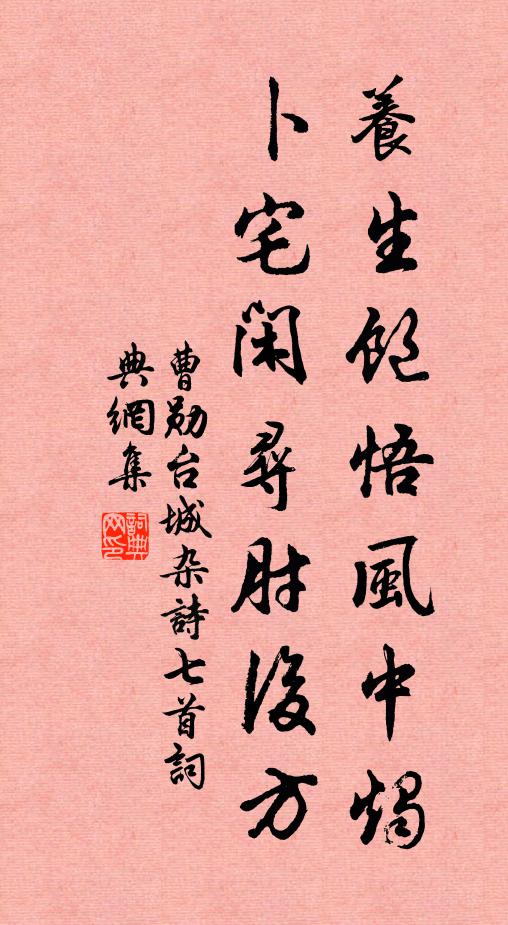 養生飽悟風中燭
卜宅閑尋肘後方
曹勛台城杂詩七首詞
典網集
詞典網印